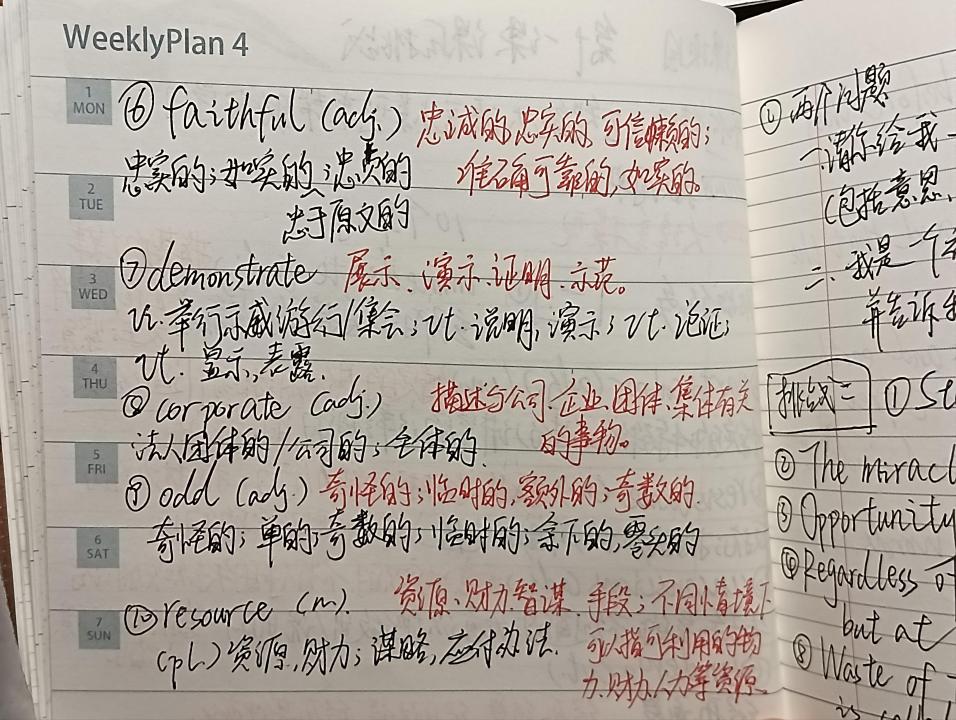 WeeklyPlan 4
1 MON
⑥ faithful (adj.) 忠诚的,忠实的,可信赖的;
忠实的;如实的;忠贞的 准确可靠的,如实的。
2 TUE
忠于原文的
3 WED
⑦ demonstrate 展示、演示、证明、示范。
vi. 举行示威游行/集会; vt. 说明,演示; vt. 论证;
vt. 显示,表露.
4 THU
⑧ corporate (adj.) 描述与公司、企业、团体、集体有关
法人团体的/公司的;全体的. 的事物。
5 FRI
⑨ odd (adj.) 奇怪的;临时的,额外的;奇数的.
6 SAT
奇怪的;单的;奇数的;临时的;余下的,零头的
7 SUN
⑩ resource (n.) 资源、财力、智谋、手段;不同情境下
(pl.) 资源,财力;谋略,应付办法. 可以指可利用的物
力、财力、人力等资源.
两个问题
一.请你给我一
(包括意思、
二、我是一个
并告诉
挑战二 ①
② The miracl
③ Opportunity
④ Regardless of
but at
⑤ Waste of
is